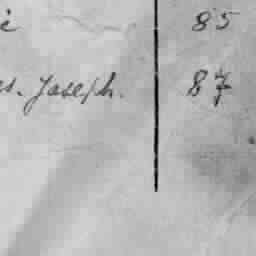 85
Joseph. 87